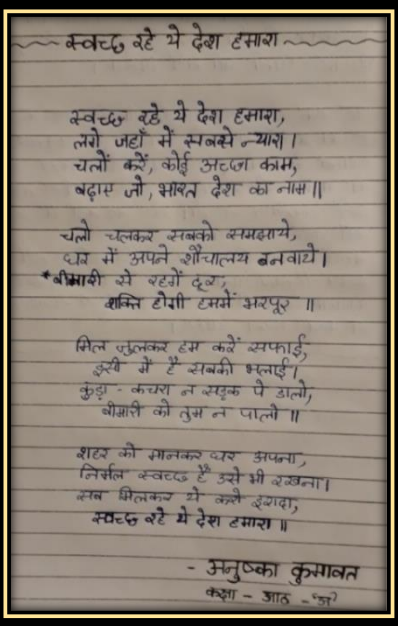 स्वच्छ रहे ये देश हमारा
स्वच्छ रहे ये देश हमारा,
लगे जहाँ में सबसे न्यारा।
चलों करें, कोई अच्छा काम,
बढ़ाए जो, भारत देश का नाम॥
चलो चलकर सबको समझाये,
घर में अपने शौचालय बनवाये।
*बीमारी से रहगें दूर,
शक्ति होगी हममें भरपूर ॥
मिल जुलकर हम करें सफाई,
इसी में है सबकी भलाई।
कुड़ा - कचरा न सड़क पे डालो,
बीमारी को तुम न पालो॥
शहर को मानकर घर अपना,
निर्मल स्वच्छ है उसे भी रखना।
सब मिलकर ये करो इरादा,
स्वच्छ रहे ये देश हमारा॥
- अनुष्का कुमावत
कक्षा - आठ - 'अ'